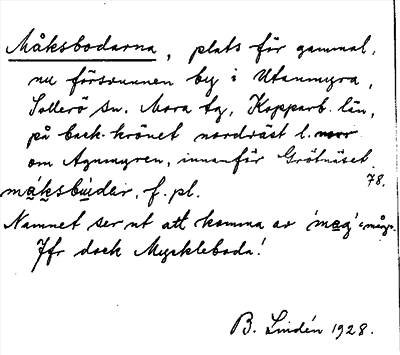 Måksbodarna, plats för gammal,
nu försvunnen by i Utanmyra,
Sollerö sn. Mora tg, Kopparb. län,
på back-krönet nordväst l. norr
om Agnmyren, innanför Grötnäset.
78.
måksbudar, f. pl.
Namnet ser ut att komma av 'mag' = måg.
Jfr dock Myckleboda!
B. Lindén 1928.